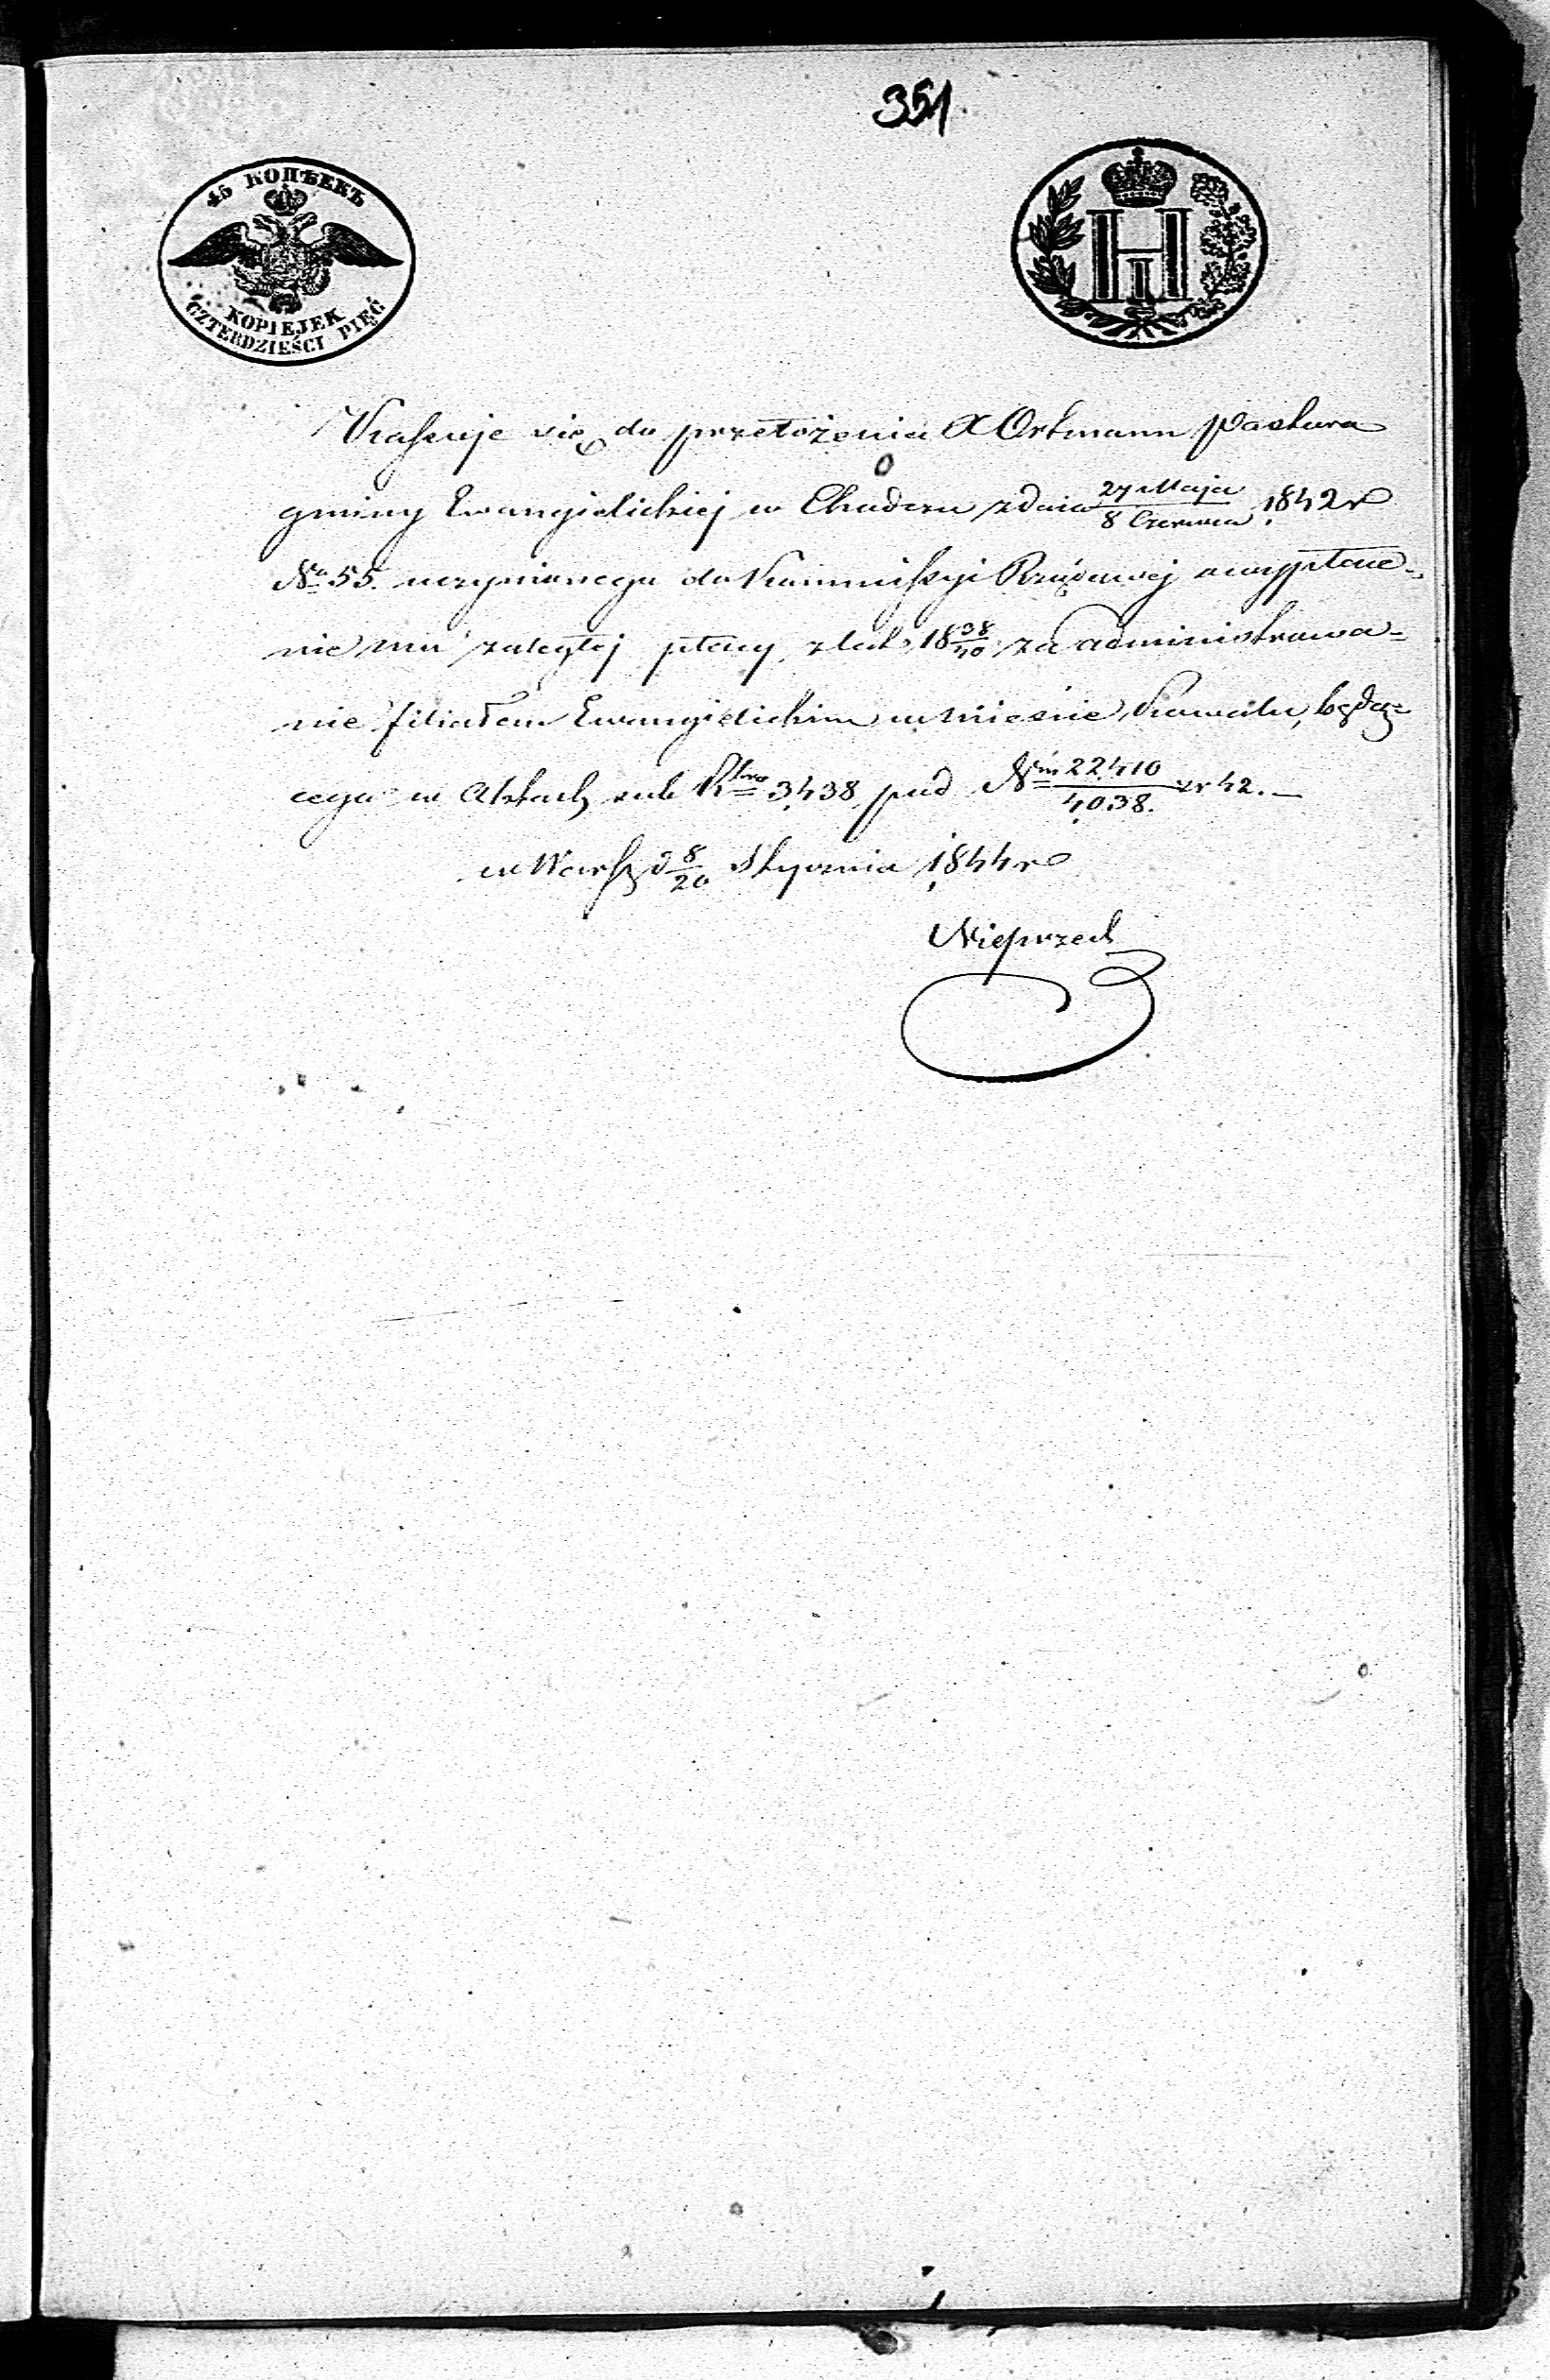 351
45 КОПѢЕКЪ
KOPIEJEK
CZTERDZIEŚCI PIĘĆ
H I
Kassuje się do przełożenia X Ortmann Pastora
gminy Ewangielickiej w Chodczu z dnia 27 Maja / 8 Czerwca 1842 r
No 55. uczynionego do Kommissyi Rządowej o wypłace-
nie mu zaległej płacy z lat 18 38/40 za administrowa-
nie filiałem Ewangielickim w mieście Kowalu, będą-
cego w Aktach sub Rtro 3438 pod Nrm 22410 / 4038. z r 42. —
w Warsz d 8/20 Stycznia 1844 r
Nieprzech